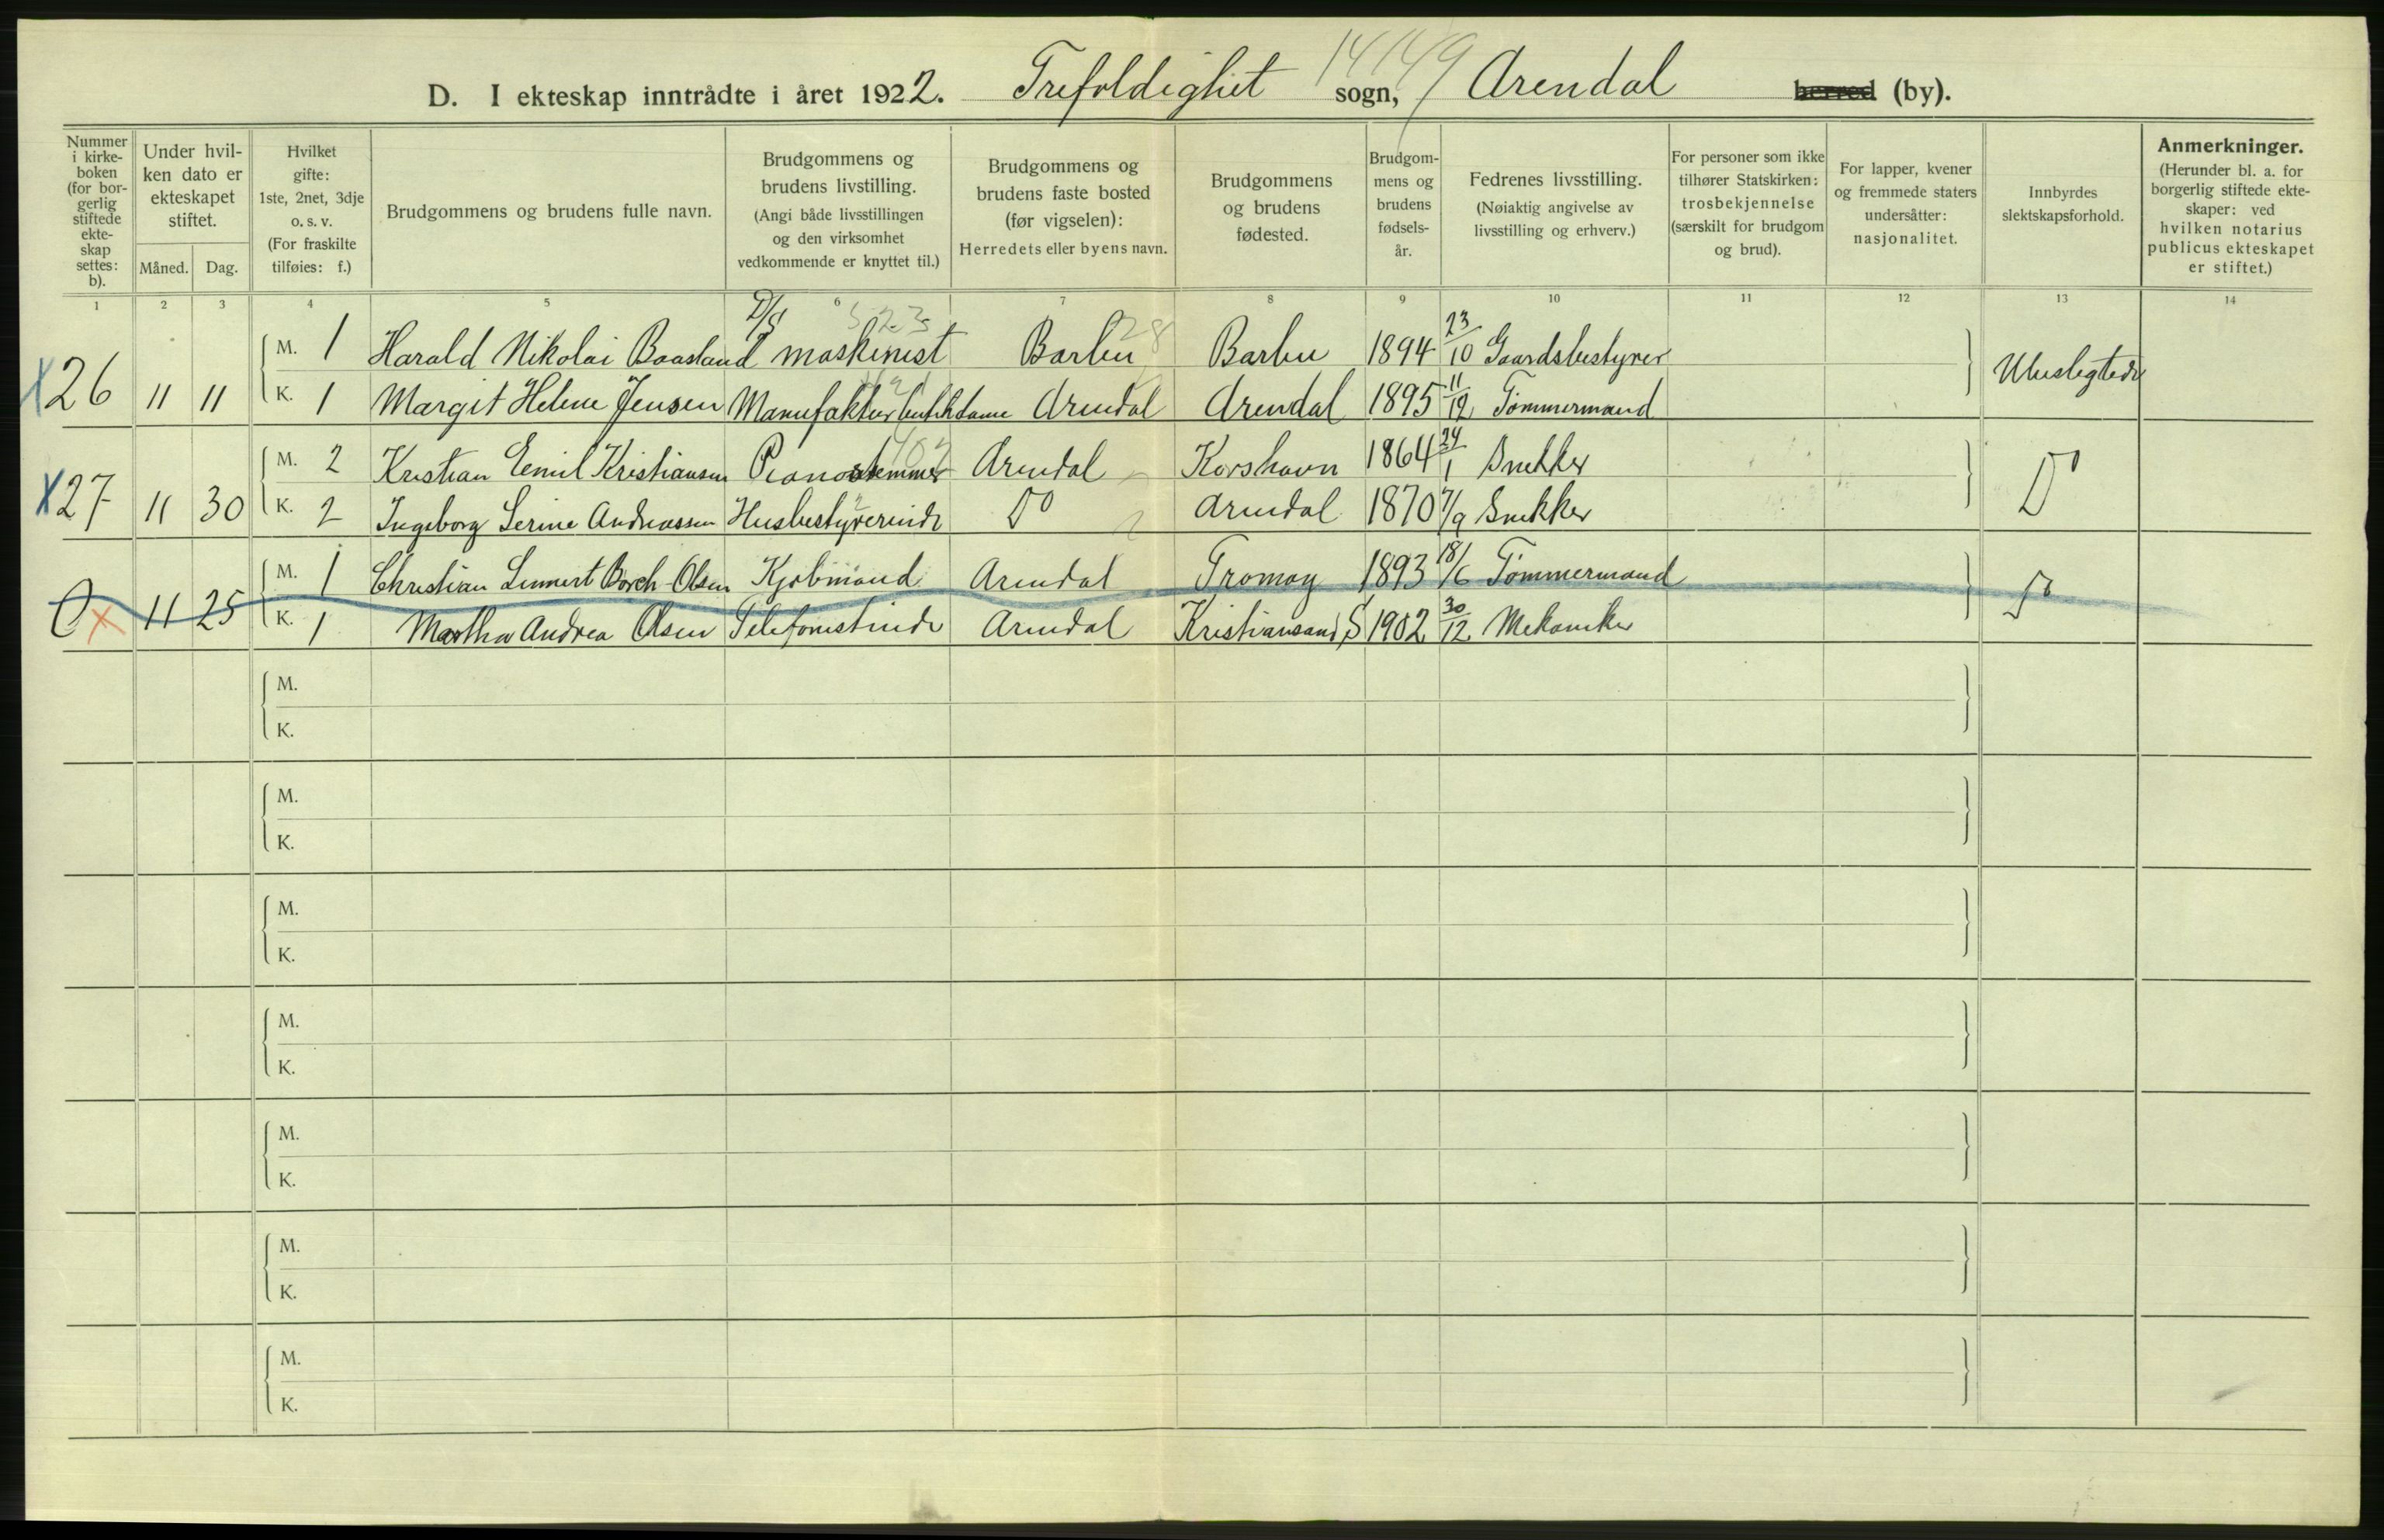 14149
D. I ekteskap inntrådte i året 1922. Trefoldighet sogn, Arendal herred (by).
Nummer i kirkeboken (for borgerlig stiftede ekteskap settes: b).
Under hvilken dato er ekteskapet stiftet.
Måned. Dag.
Hvilket gifte: 1ste, 2net, 3dje o. s. v. (For fraskilte tilføies: f.)
Brudgommens og brudens fulle navn.
Brudgommens og brudens livstilling. (Angi både livsstillingen og den virksomhet vedkommende er knyttet til.)
Brudgommens og brudens faste bosted (før vigselen): Herredets eller byens navn.
Brudgommens og brudens fødested.
Brudgommens og brudens fødselsår.
Fedrenes livsstilling. (Nøiaktig angivelse av livsstilling og erhverv.)
For personer som ikke tilhører Statskirken: trosbekjennelse (særskilt for brudgom og brud).
For lapper, kvener og fremmede staters undersåtter: nasjonalitet.
Innbyrdes slektskapsforhold.
Anmerkninger. (Herunder bl. a. for borgerlig stiftede ekteskaper: ved hvilken notarius publicus ekteskapet er stiftet.)
1 2 3 4 5 6 7 8 9 10 11 12 13 14
X 26 11 11 M. 1 Harald Nikolai Baasland D/S maskinist Barbu Barbu 1894 23/10 Gaardsbestyrer Ubeslegtede
K. 1 Margit Helene Jensen Manufaktur butikdame Arendal Arendal 1895 11/12 Tømmermand
X 27 11 30 M. 2 Kristian Emil Kristiansen Pianostemmer Arendal Korshavn 1864 24/1 Snekker Do
K. 2 Ingeborg Serine Andreassen Husbestyrerinde Do Arendal 1870 7/9 Snekker
X 11 25 M. 1 Christian Lennert Borch-Olsen Kjøbmand Arendal Tromøy 1893 18/6 Tømmermand Do
K. 1 Martha Andrea Olsen Telefonistinde Arendal Kristiansand S 1902 30/12 Mekaniker
M.
K.
M.
K.
M.
K.
M.
K.
M.
K.
M.
K.
M.
K.